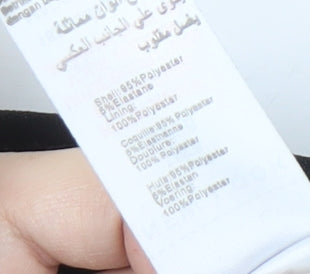 dengan
على الجانب العكسي
يفضل مقلوب
Shell:95%Polyester
5%Elastane
Lining:
100%Polyester
Coquille:95% Polyester
5%Elasthanne
Doublure:
100%Polyester
Hulle:95%Polyester
5%Elastan
Voering:
100%Polyester